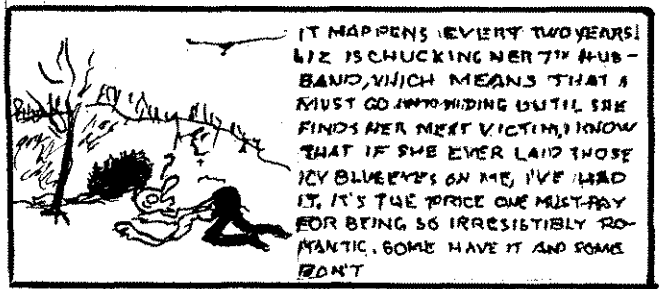 IT HAPPENS EVERY TWO YEARS!
LIZ IS CHUCKING HER 7TH HUS-
BAND, WHICH MEANS THAT I
MUST GO INTO HIDING UNTIL SHE
FINDS HER NEXT VICTIM, I KNOW
THAT IF SHE EVER LAID THOSE
ICY BLUE EYES ON ME, I'VE HAD
IT, IT'S THE PRICE ONE MUST PAY
FOR BEING SO IRRESISTIBLY RO-
MANTIC. SOME HAVE IT AND SOME
DON'T